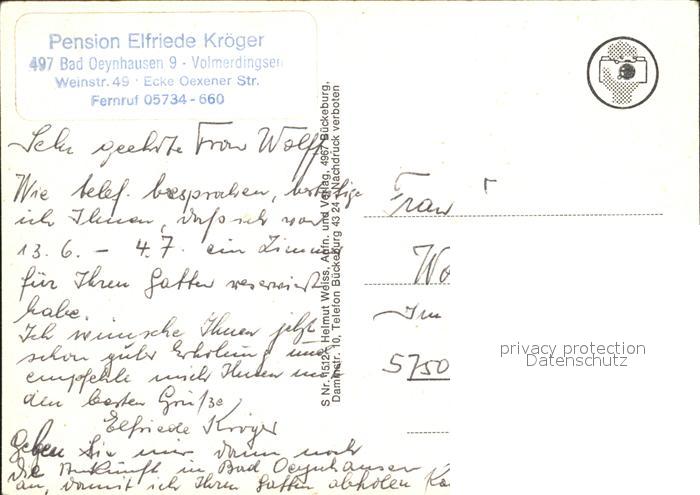 Pension Elfriede Kröger
497 Bad Oeynhausen 9 - Volmerdingsen
Weinstr. 49 · Ecke Oexener Str.
Fernruf 05734 - 660
Sehr geehrte Frau Wolff
Wie telef. besprochen, bestätige
ich Ihnen, daß ich vom
13. 6. – 4. 7. ein Zimmer
für Ihren Gatten reserviert
habe.
Ich wünsche Ihnen jetzt
schon gute Erholung und
empfehle mich Ihnen mit
den besten Grüßen
Elfriede Kröger
Geben Sie mir dann noch
die Ankunft in Bad Oeynhausen
an, damit ich Ihren Gatten abholen
S Nr. 15124 Helmut Weiss, Anfn. und Verlag, 4967 Bückeburg,
Dammstr. 10, Telefon Bückeburg 43 24 - Nachdruck verboten
Frau
Wo
Im
5750
privacy protection
Datenschutz